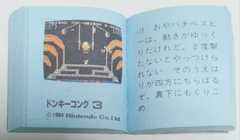 ドンキーコング 3
©1984 Nintendo Co. Ltd.
③ おやバチベスピ
ーは、動きがゆっく
りだけれど、2度撃
たないとやっつけら
れない そのうえは
りが四方にちらばる
ぞ。真下にもぐりこ
め